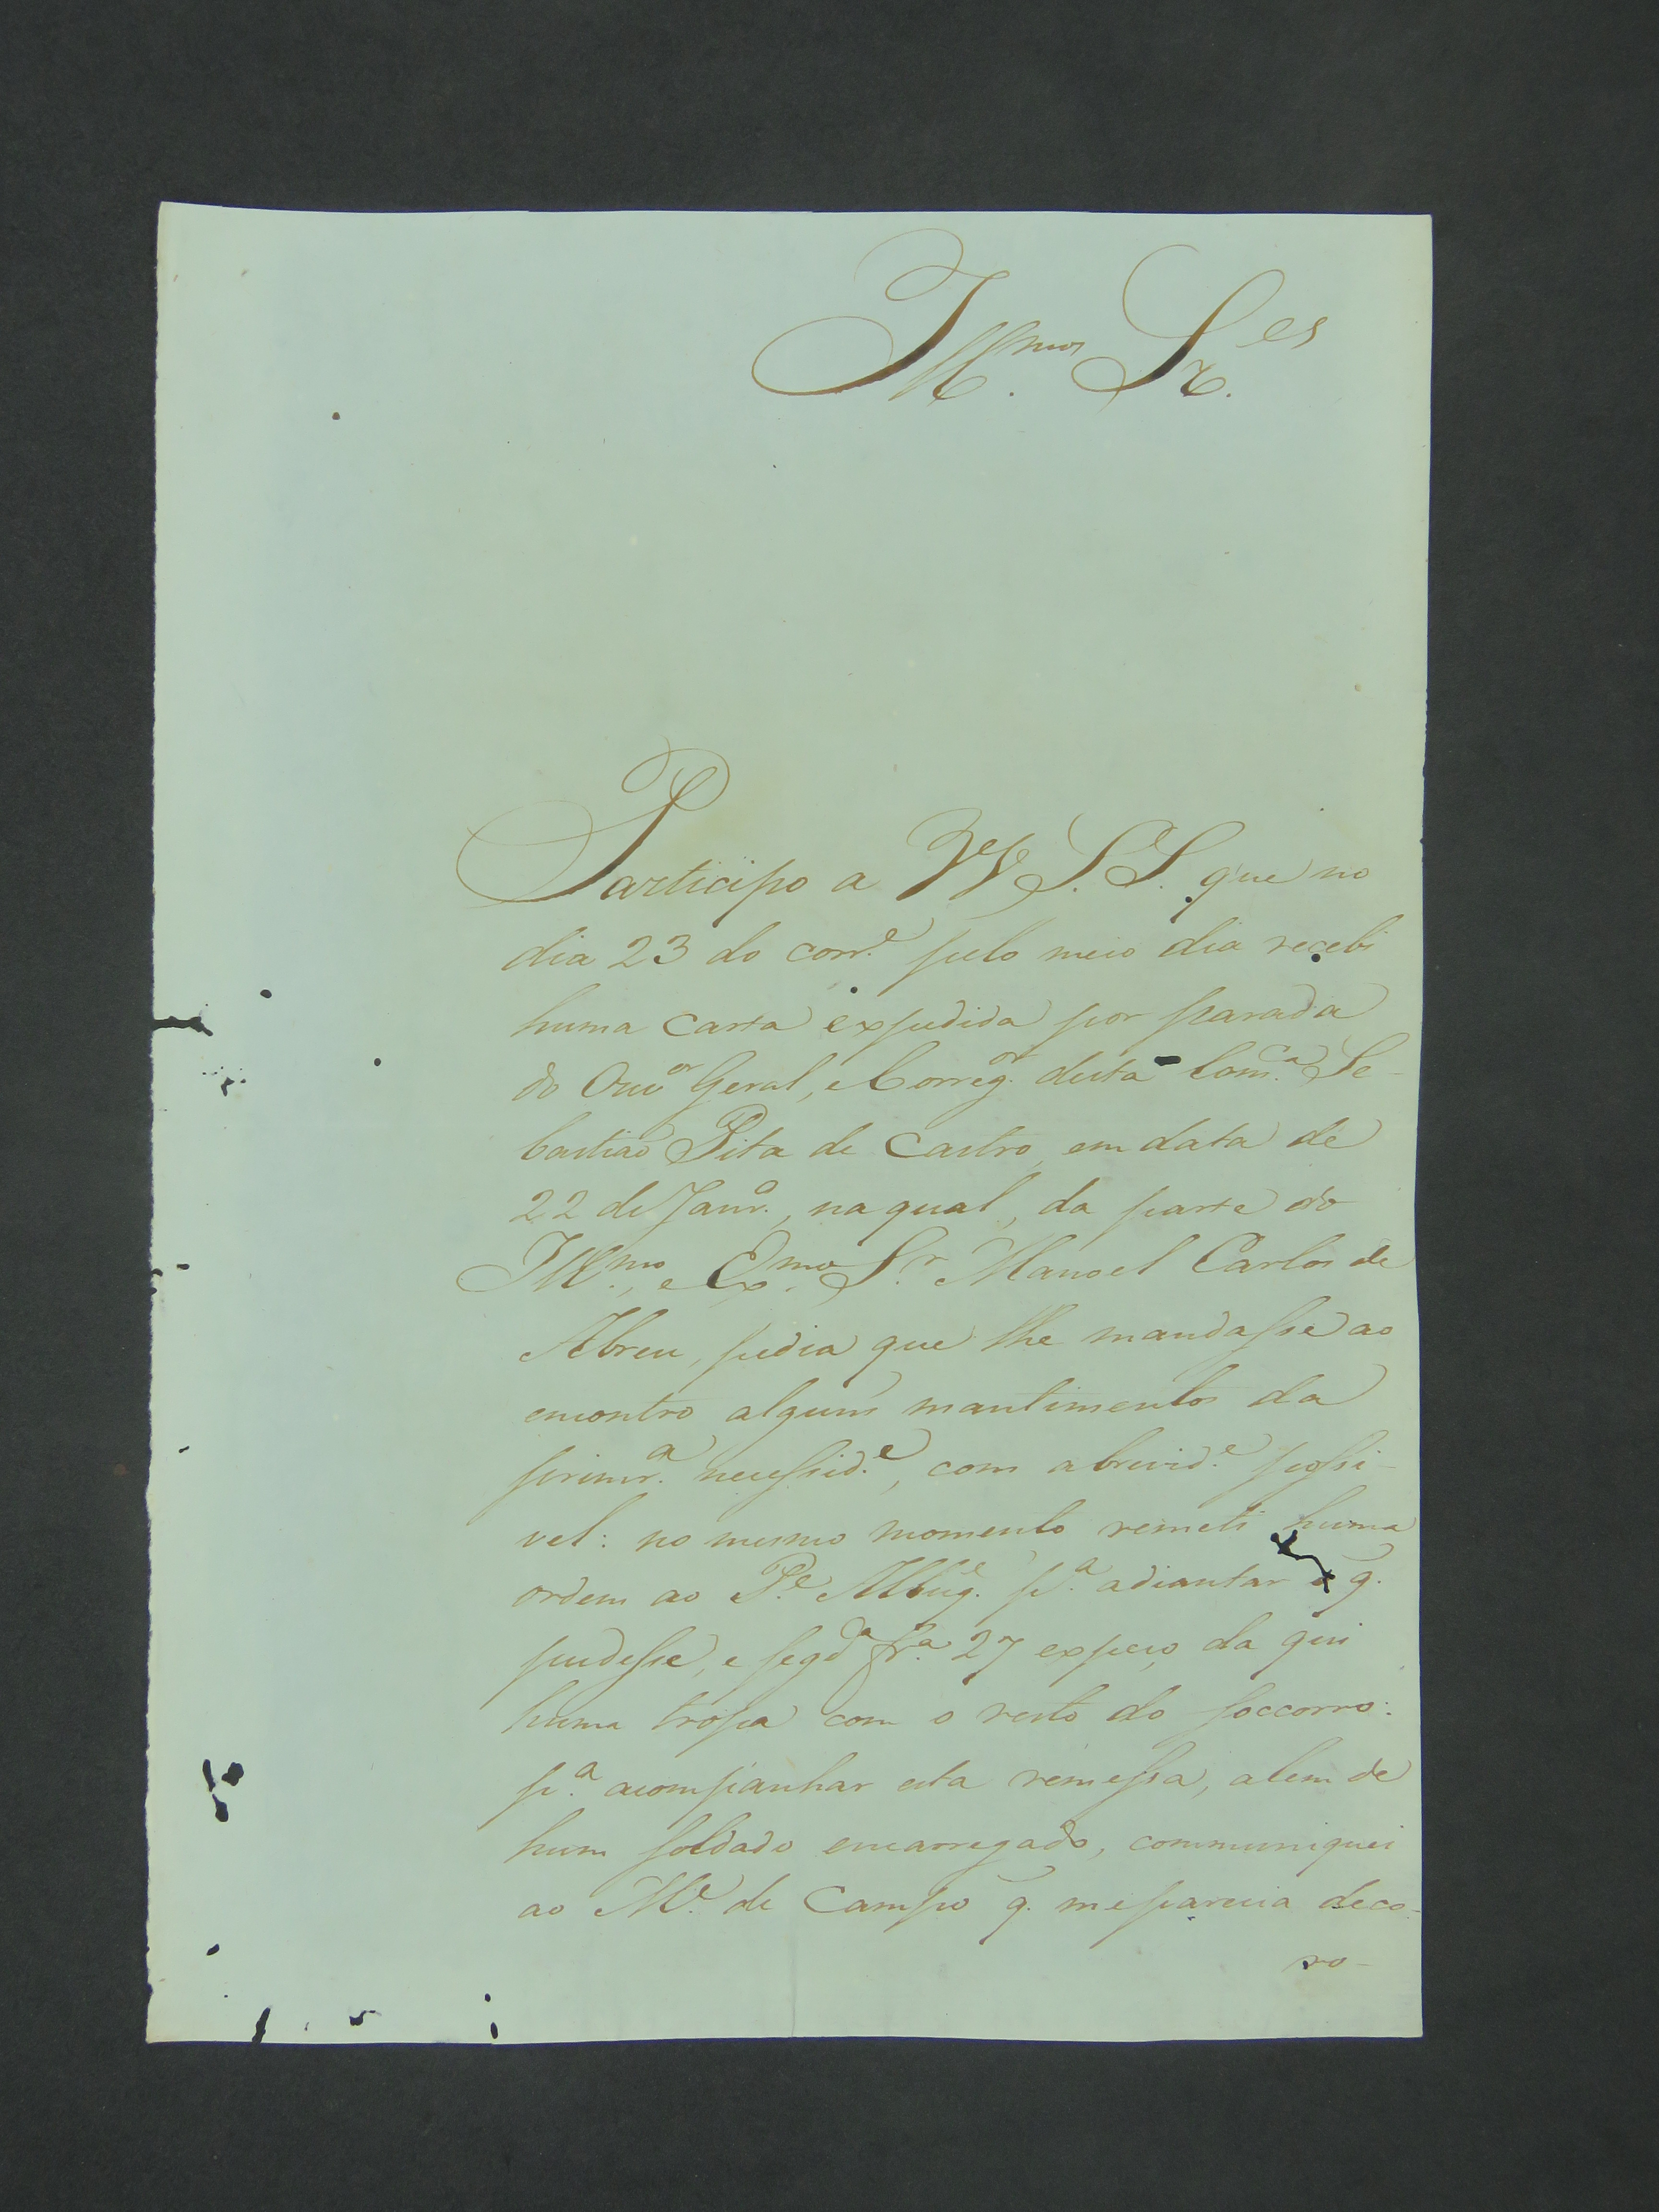 Ill.mos Sr.es
Participo a VV. S.S. que no
dia 23 do corr.e pelo meio dia recebi
huma carta expedida por parada
do Ouv.or Geral, e Correg.or desta Com.ca Se-
bastiaõ Pita de Castro, em data de
22 de Janr.o, na qual, da parte do
Ill.mo, e Ex.mo S.r Manoel Carlos de
Abreu, pedia que lhe mandasse ao
encontro alguns mantimentos da
primr.a necessid.e, com a brevid.e possi-
vel: no mesmo momento remeti huma
ordem ao P.e p.a adiantar o q.
pudesse, e seg.da fr.a 27 expeço da qui
huma tropa com o resto do soccorro:
p.a acompanhar esta remessa, alem de
hum soldado encarregado, communiquei
ao M.e de Campo q. me parecia deco-
ro-